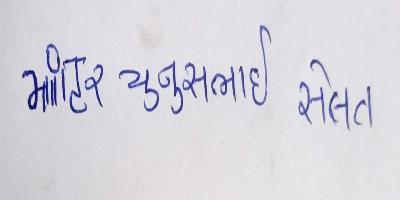 માહિર યુનુસભાઈ સેલત